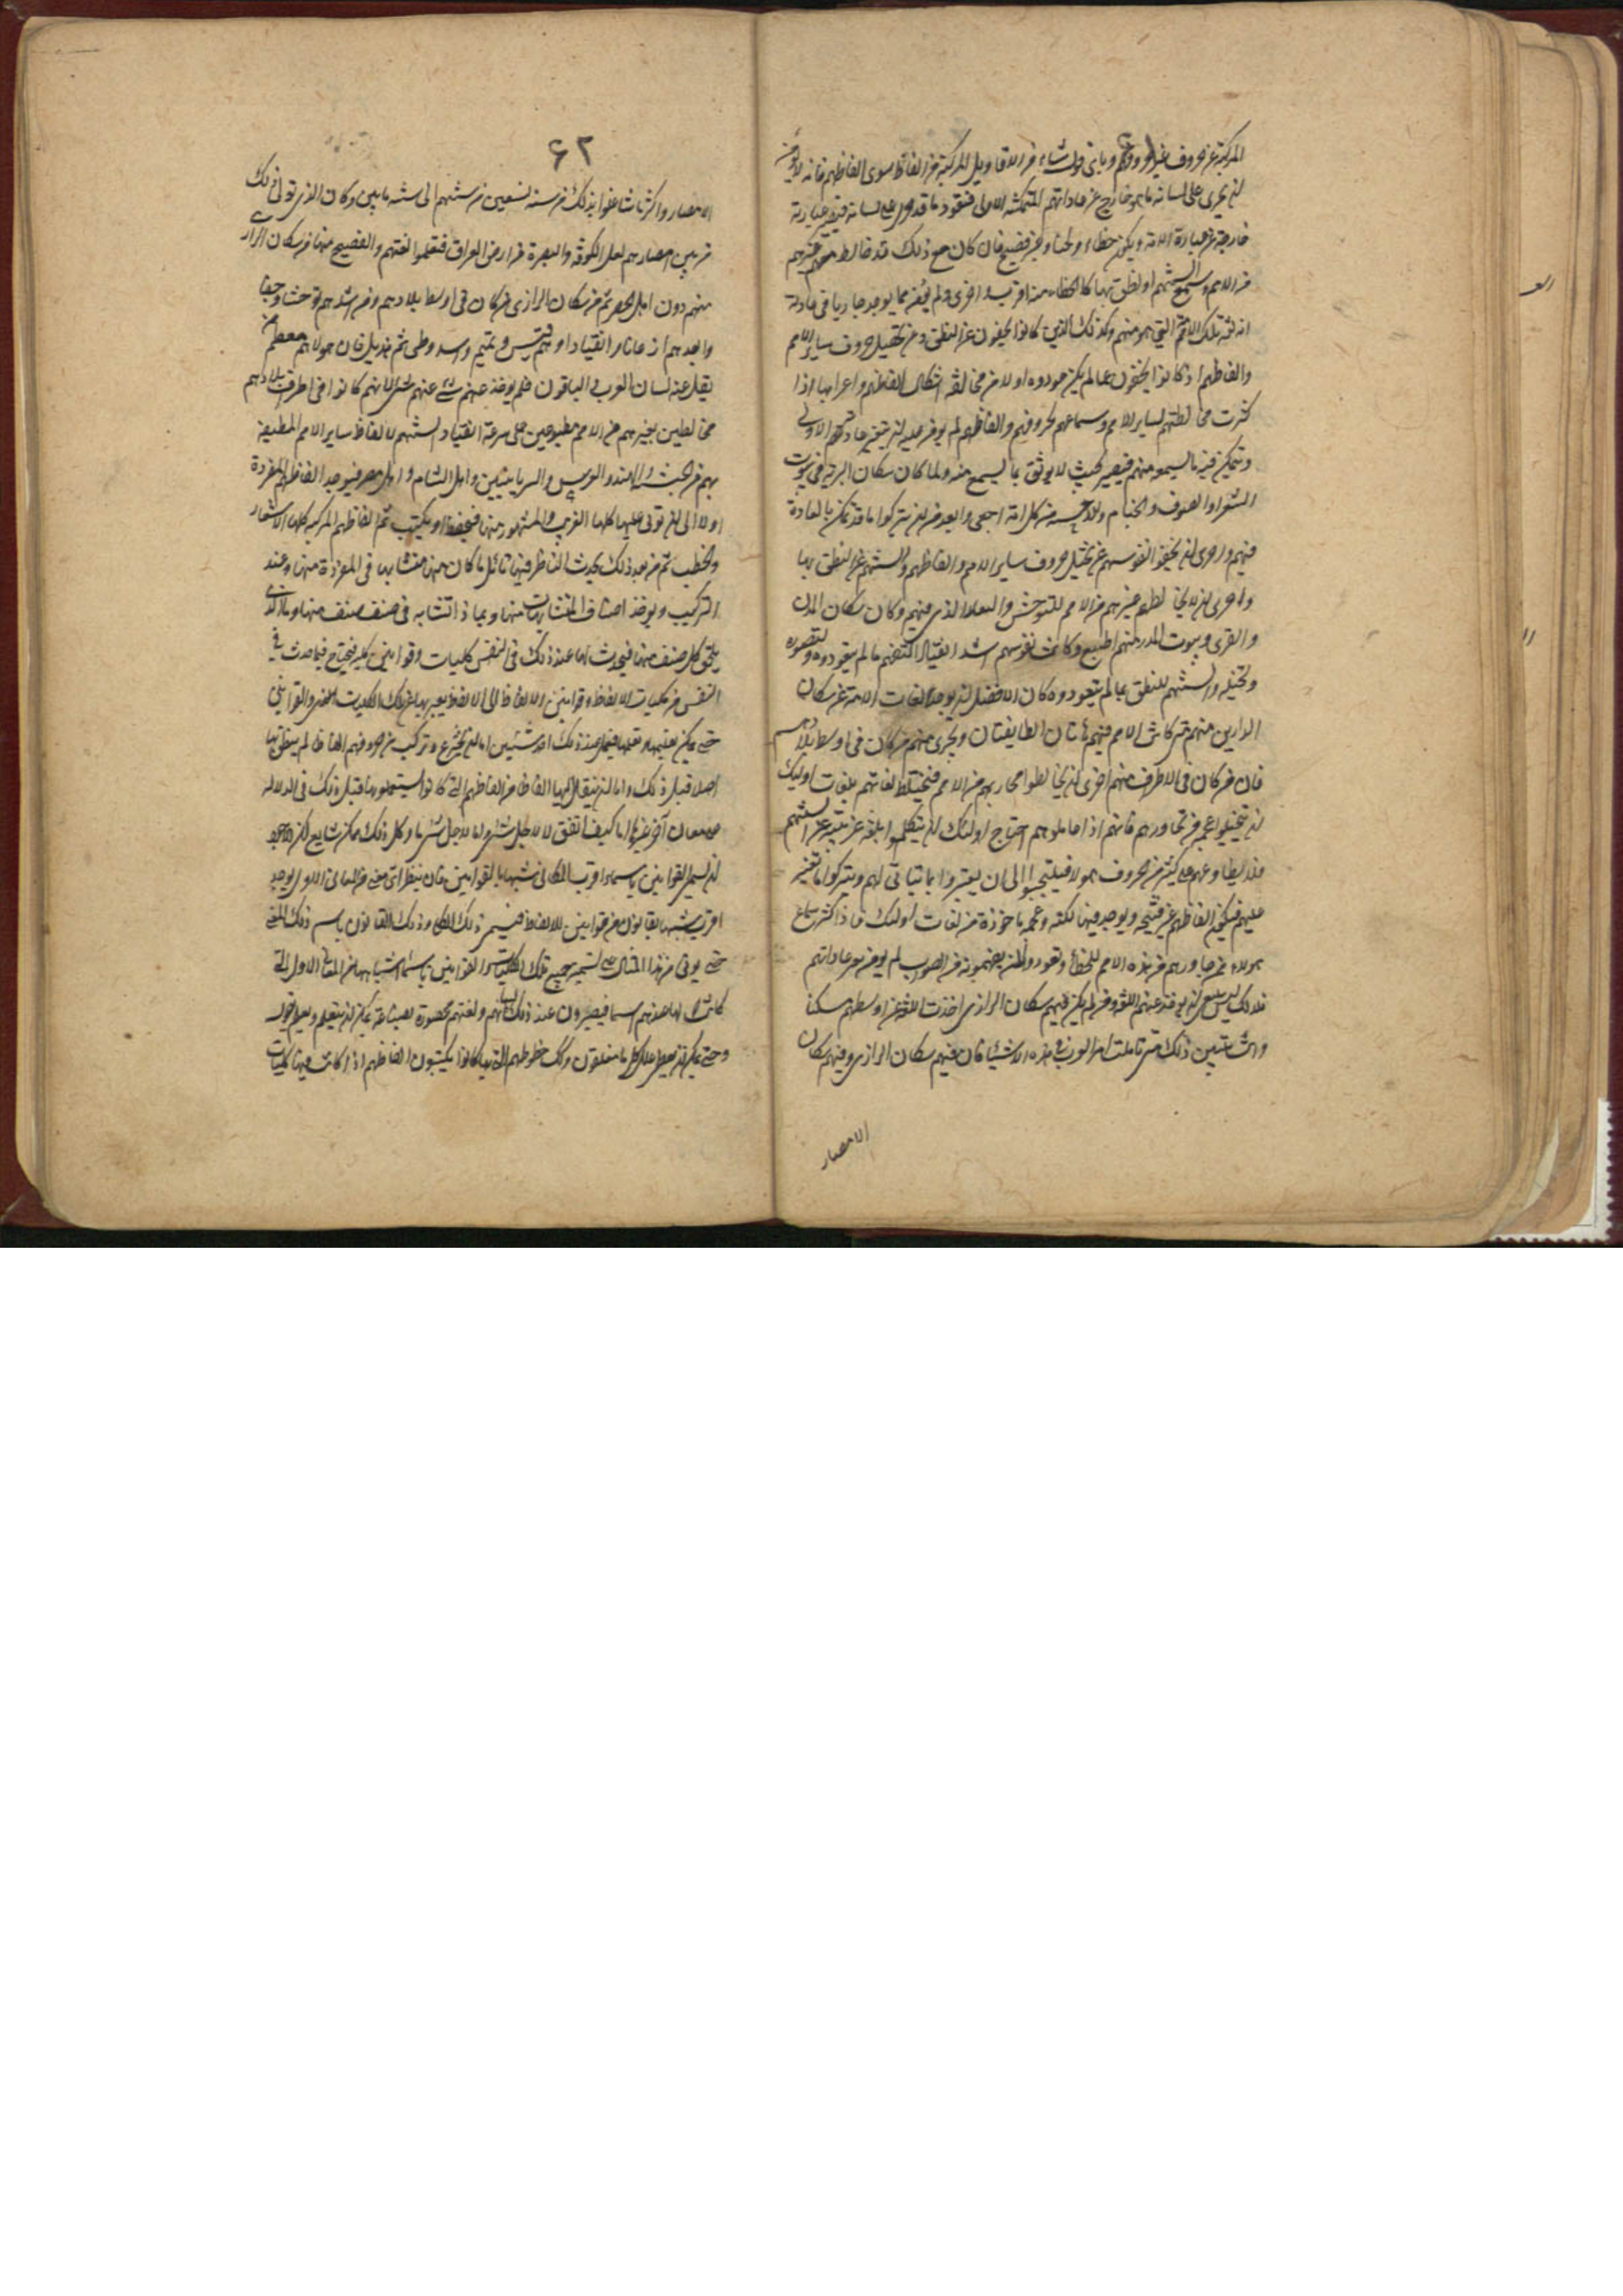 المركبة عن حروف غير حروفهم وباتى قول شاء من الاقاويل المركبة من الفاظ سوى الفاظهم فانه لا يؤمن
ان يجرى على لسانه ما هو خارج عن عاداتهم المتمكنة الاولى فتعود ما قد جرى على لسانه فتصير عبارته
خارجة عن عبارة الامة ويكون خطاء ولحنا وغير فصيح فان كان مع ذلك قد خالط غيرهم
من الامم وسمع السنتهم او نطق بها كان الخطاء منه اقرب واحرى ولم يؤمن مما يوجد جاريا فى عادته
انه لغير تلك الامة التى هو منهم وكذلك الذين كانوا يحيفون عن النطق وعن تحصيل حروف ساير الامم
والفاظهم اذ كانوا يحيفون عما لم يكن عودوه اولا من مخالفة اشكال الفاظهم واعرابها اذا
كثرت مخالطتهم لساير الامم وسماعهم لحروفهم والفاظهم لم يؤمن عليه ان يتغير عادته الاولى
ويتمكن فيه ما يسمعه منهم فيصير بحيث لا يوثق بما يسمع منه ولما كان سكان البرية فى بيوت
الشعر او الصوف والخيام والاحسية من كل امة اجفى وابعد من ان يتركوا ما قد تمكن بالعادة
فيهم واحرى ان يحيفوا نفوسهم عن تخيل حروف ساير الامم والفاظهم والسنتهم عن النطق بها
واحرى ان لا يخالطهم غيرهم من الامم للتوحش والجفاء الذى فيهم وكان سكان المدن
والقرى وبيوت المدر منهم اطبع وكانت نفوسهم اشد انقيادا لتفهم ما لم يتعودوه ولتصوره
وتخيله والسنتهم للنطق بما لم يتعودوه كان الافضل ان يؤخذ لغات الامة عن سكان
البرارى منهم متى كانت الامم فيهم هاتان الطايفتان ويتحرى منهم من كان فى اوسط بلادهم
فان من كان فى الاطراف منهم احرى ان يخالطوا مجاوريهم من الامم فتختلط لغاتهم بلغات اوليك
ان يتخيلوا عجمة من يجاورهم فانهم اذا عاملوهم احتاج اوليك ان يتكلموا بلغة غريبة عن السنتهم
فلا تطاوعهم على كثير من حروف هولاء فيلتجئوا الى ان يعبروا بما يتأتى لهم ويتركوا ما تعسر
عليهم فيكون الفاظهم عسرة قبيحة ويوجد فيها لكنة وعجمة ماخوذة من لغات اوليك فاذا كثر سماع
هولاء ممن جاورهم من هذه الامم للخطاء وتعودوا ان يفهموه من الصواب لم يؤمن تغير عاداتهم
فلذلك ليس ينبغى ان يؤخذ عنهم اللغة ومن لم يكن فيهم سكان البرارى اخذت اللغة عن اوسطهم مسكنا
وانت تتبين ذلك متى تاملت امر العرب فى هذه الاشياء فان فيهم سكان البرارى وفيهم سكان
الامصار
٦٢
الامصار واكثر ما تشاغلوا بذلك من سنة تسعين من سنتهم الى سنة مايتين وكان الذى تولى ذلك
من بين امصارهم اهل الكوفة والبصرة من ارض العراق فتعلموا لغتهم والفصيح منها من سكان البرارى
منهم دون اهل الحضر ثم من سكان البرارى من كان فى اوسط بلادهم ومن اشدهم توحشا وجفاء
وابعدهم اذعانا وانقيادا وهم قيس وتميم واسد وطى ثم هذيل فان هولاء هم معظم من
نقل عنه لسان العرب والباقون فلم يؤخذ عنهم شئ لانهم كانوا فى اطراف بلادهم
مخالطين لغيرهم من الامم مطبوعين على سرعة انقياد السنتهم لالفاظ ساير الامم المطيفة
بهم من الحبشة والهند والفرس والسريانيين واهل الشام واهل مصر فيوجد الفاظهم المفردة
اولا الى ان يؤتى عليها كلها الغريب والمشهور منها فيحفظ او يكتب ثم الفاظهم المركبة كلها من الاشعار
والخطب ثم من بعد ذلك يحدث للناظر فيها تأمل ما كان منها متشابها فى المفردة منها وعند
التركيب ويؤخذ اصناف المتشابهات منها وبماذا تتشابه فى صنف صنف منها وما الذى
يلحق كل صنف منها فيحدث لها عند ذلك فى النفس كليات وقوانين كلية فيحتاج فيما حدث فى
النفس من كليات الالفاظ وقوانين الالفاظ الى الفاظ يعبر بها عن تلك الكليات والقوانين
حتى يمكن تعليمها وتعلمها فيعمل عند ذلك احد شيئين اما ان يخترع ويركب من حروفهم الفاظا لم ينطق بها
اصلا قبل ذلك واما ان ينقل اليها الفاظا من الفاظهم التى كانوا يستعملونها قبل ذلك فى الدلالة
على معان اخر غيرها اما كيف اتفق لا لاجل شئ واما لاجل شئ ما وكل ذلك ممكن شايع لكن الاجود
ان يسمى القوانين باسماء اقرب المعانى شبها بالقوانين بان ينظر اى معنى من المعانى الاول يوجد
اقرب شبها بقانون من قوانين الالفاظ فيسمى ذلك الكلى وذلك القانون باسم ذلك المعنى
حتى يؤتى من هذا المثال على تسمية جميع تلك الكليات والقوانين باسماء اشباهها من المعانى الاول التى
كانت لها عندهم اسماء فيصيرون عند ذلك لسانهم ولغتهم بصورة صناعة يمكن ان يتعلم ويعلم بقول
وحتى يمكن ان يعطى علل كل ما يقولون وكذلك خطوطهم التى بها كانوا يكتبون الفاظهم اذا كانت فيها كليات